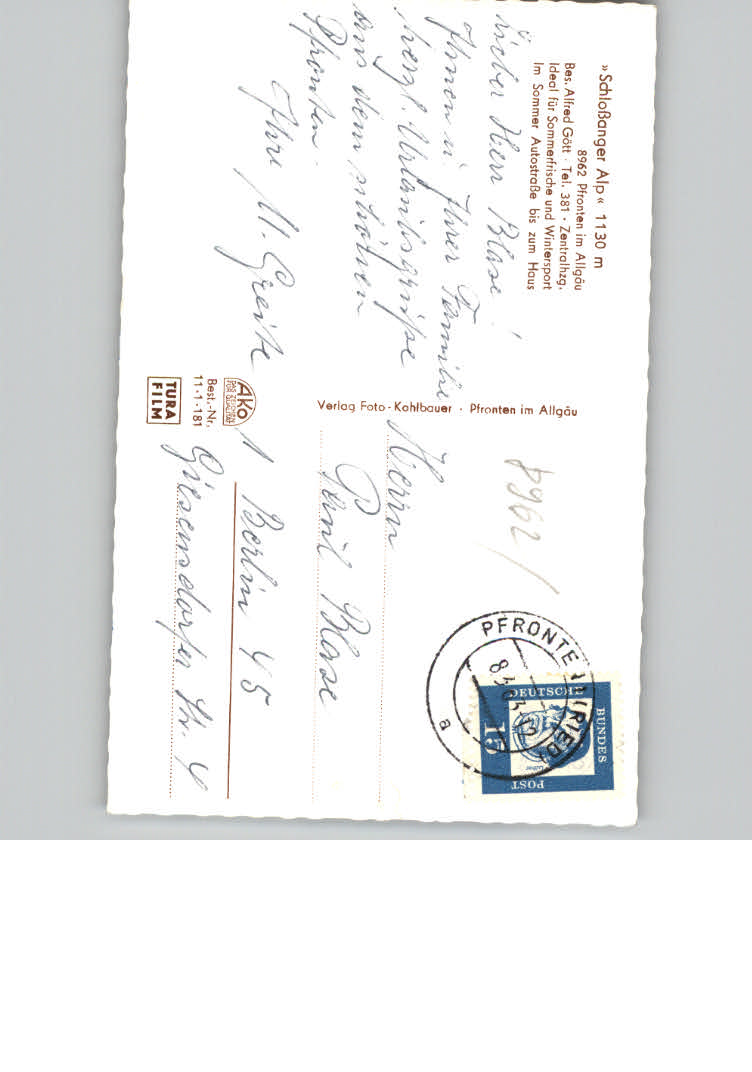 »Schloßanger Alp« 1130 m
8962 Pfronten im Allgäu
Bes. Alfred Gött · Tel. 381 · Zentralhzg.
Ideal für Sommerfrische und Wintersport
Im Sommer Autostraße bis zum Haus
Lieber Herr Blase!
Ihnen u. Ihrer Familie
herzl. Urlaubsgrüße
aus dem schönen
Pfronten.
Ihre M. Greite
Verlag Foto-Kohlbauer · Pfronten im Allgäu
AKO
DAS ZEICHEN
FÜR QUALITÄT
Best.-Nr.
11·1·181
TURA
FILM
8962/
PFRONTEN (RIED)
a
DEUTSCHE
BUNDES
POST
15
Luther
Herrn
Paul Blase
1 Berlin 45
Giesensdorfer Str. 4